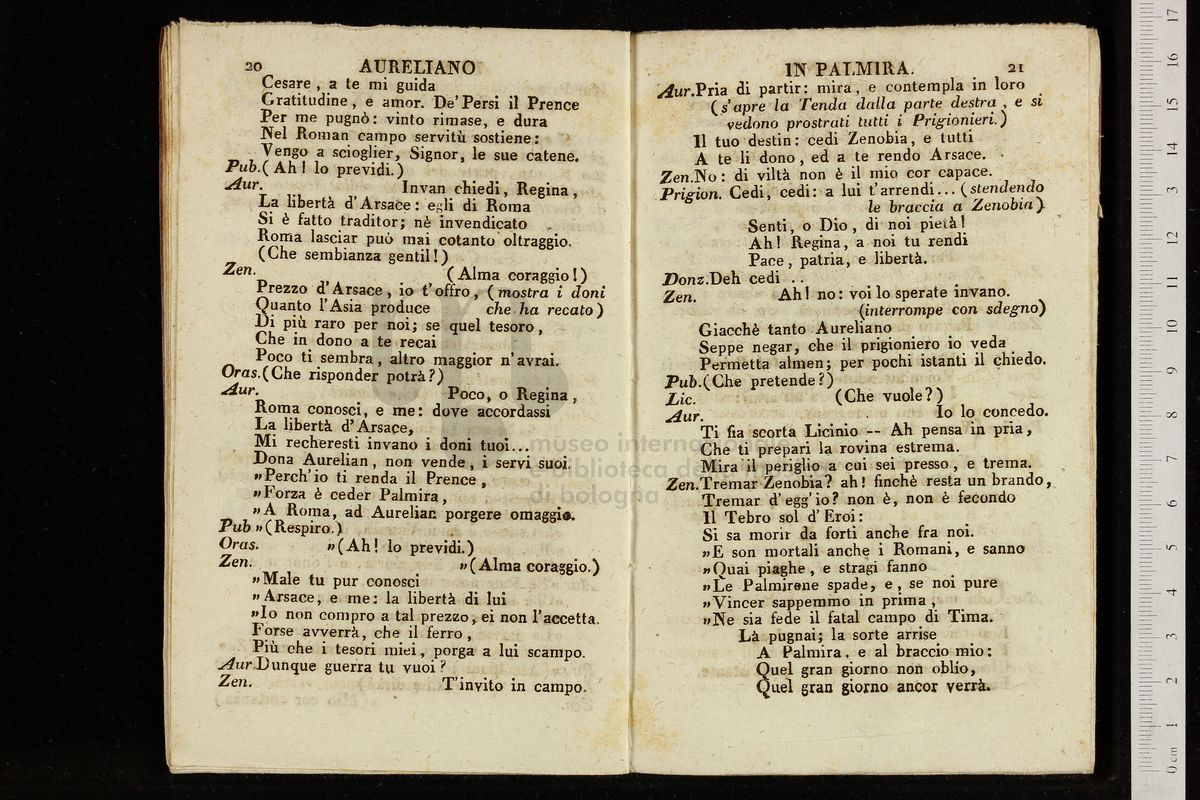 20 AURELIANO
Cesare, a te mi guida
Gratitudine, e amor. De' Persi il Prence
Per me pugnò: vinto rimase, e dura
Nel Roman campo servitù sostiene:
Vengo a scioglier, Signor, le sue catene.
Pub. (Ah! lo previdi.)
Aur. Invan chiedi, Regina,
La libertà d'Arsace: egli di Roma
Si è fatto traditor; nè invendicato
Roma lasciar può mai cotanto oltraggio.
(Che sembianza gentil!)
Zen. (Alma coraggio!)
Prezzo d'Arsace, io t'offro, (mostra i doni
Quanto l'Asia produce che ha recato)
Di più raro per noi; se quel tesoro,
Che in dono a te recai
Poco ti sembra, altro maggior n'avrai.
Oras. (Che risponder potrà?)
Aur. Poco, o Regina,
Roma conosci, e me: dove accordassi
La libertà d'Arsace,
Mi recheresti invano i doni tuoi...
Dona Aurelian, non vende, i servi suoi.
"Perch'io ti renda il Prence,
"Forza è ceder Palmira,
"A Roma, ad Aurelian porgere omaggio.
Pub "(Respiro.)
Oras. "(Ah! lo previdi.)
Zen. "(Alma coraggio.)
"Male tu pur conosci
"Arsace, e me: la libertà di lui
"Io non compro a tal prezzo, ei non l'accetta.
Forse avverrà, che il ferro,
Più che i tesori miei, porga a lui scampo.
Aur Dunque guerra tu vuoi?
Zen. T'invito in campo.
IN PALMIRA. 21
Aur. Pria di partir: mira, e contempla in loro
(s'apre la Tenda dalla parte destra, e si
vedono prostrati tutti i Prigionieri.)
Il tuo destin: cedi Zenobia, e tutti
A te li dono, ed a te rendo Arsace.
Zen. No: di viltà non è il mio cor capace.
Prigion. Cedi, cedi: a lui t'arrendi... (stendendo
le braccia a Zenobia)
Senti, o Dio, di noi pietà!
Ah! Regina, a noi tu rendi
Pace, patria, e libertà.
Donz. Deh cedi ..
Zen. Ah! no: voi lo sperate invano.
(interrompe con sdegno)
Giacchè tanto Aureliano
Seppe negar, che il prigioniero io veda
Permetta almen; per pochi istanti il chiedo.
Pub. (Che pretende?)
Lic. (Che vuole?)
Aur. Io lo concedo.
Ti fia scorta Licinio -- Ah pensa in pria,
Che ti prepari la rovina estrema.
Mira il periglio a cui sei presso, e trema.
Zen. Tremar Zenobia? ah! finchè resta un brando,
Tremar d'egg'io? non è, non è fecondo
Il Tebro sol d'Eroi:
Si sa morir da forti anche fra noi.
"E son mortali anche i Romani, e sanno
"Quai piaghe, e stragi fanno
"Le Palmirene spade, e, se noi pure
"Vincer sappemmo in prima,
"Ne sia fede il fatal campo di Tima.
Là pugnai; la sorte arrise
A Palmira, e al braccio mio:
Quel gran giorno non oblio,
Quel gran giorno ancor verrà.
museo internazionale
e biblioteca della musica
di bologna
0 cm 1 2 3 4 5 6 7 8 9 10 11 12 13 14 15 16 17